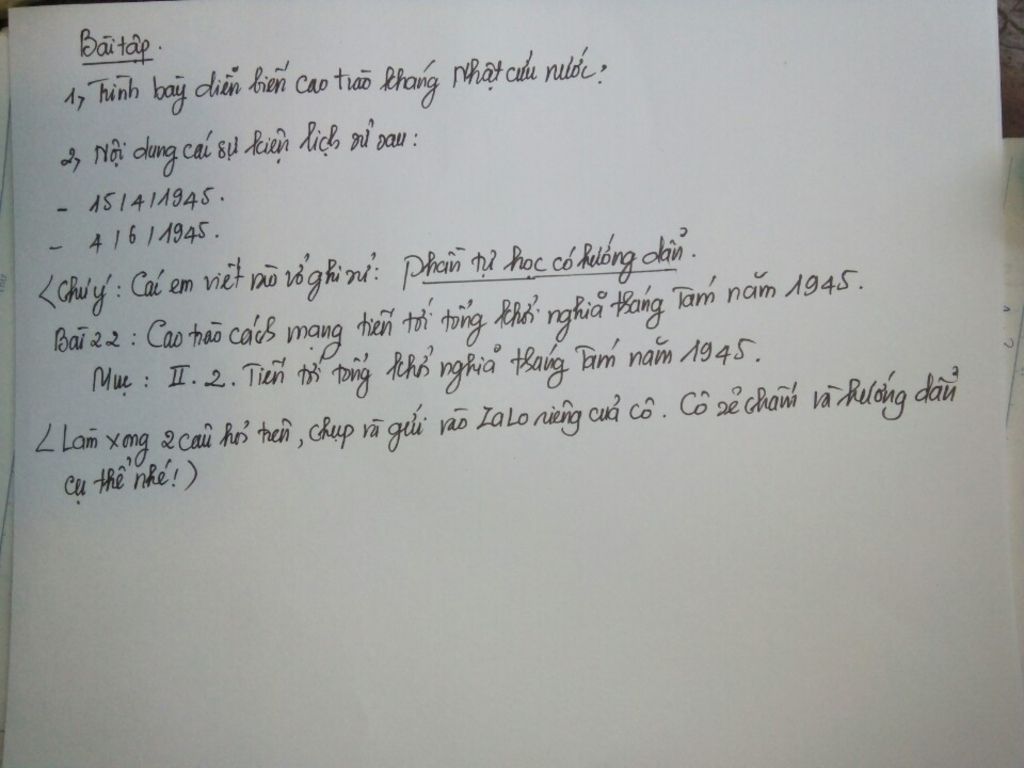 Bài tập.
1, Trình bày diễn biến cao trào kháng Nhật cứu nước?
2, Nội dung các sự kiện lịch sử sau:
- 15/4/1945.
- 4/6/1945.
(Chú ý: Các em viết vào vở ghi sử: Phần tự học có hướng dẫn.
Bài 22: Cao trào cách mạng tiến tới tổng khởi nghĩa tháng Tám năm 1945.
Mục: II. 2. Tiến tới tổng khởi nghĩa tháng Tám năm 1945.
(Làm xong 2 câu hỏi trên, chụp và gửi vào Zalo riêng của cô. Cô sẽ chấm và hướng dẫn
cụ thể nhé!)